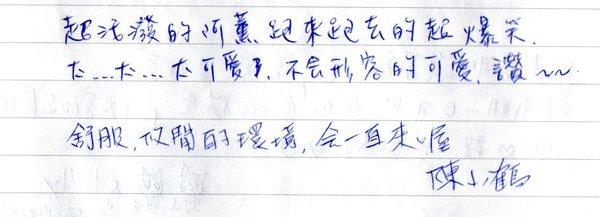 超活潑的阿薰跑來跑去的超爆笑.
太...太...太可愛了,不会形容的可愛,讚~~
舒服,悠閒的環境,会一直來喔
陳小鶴